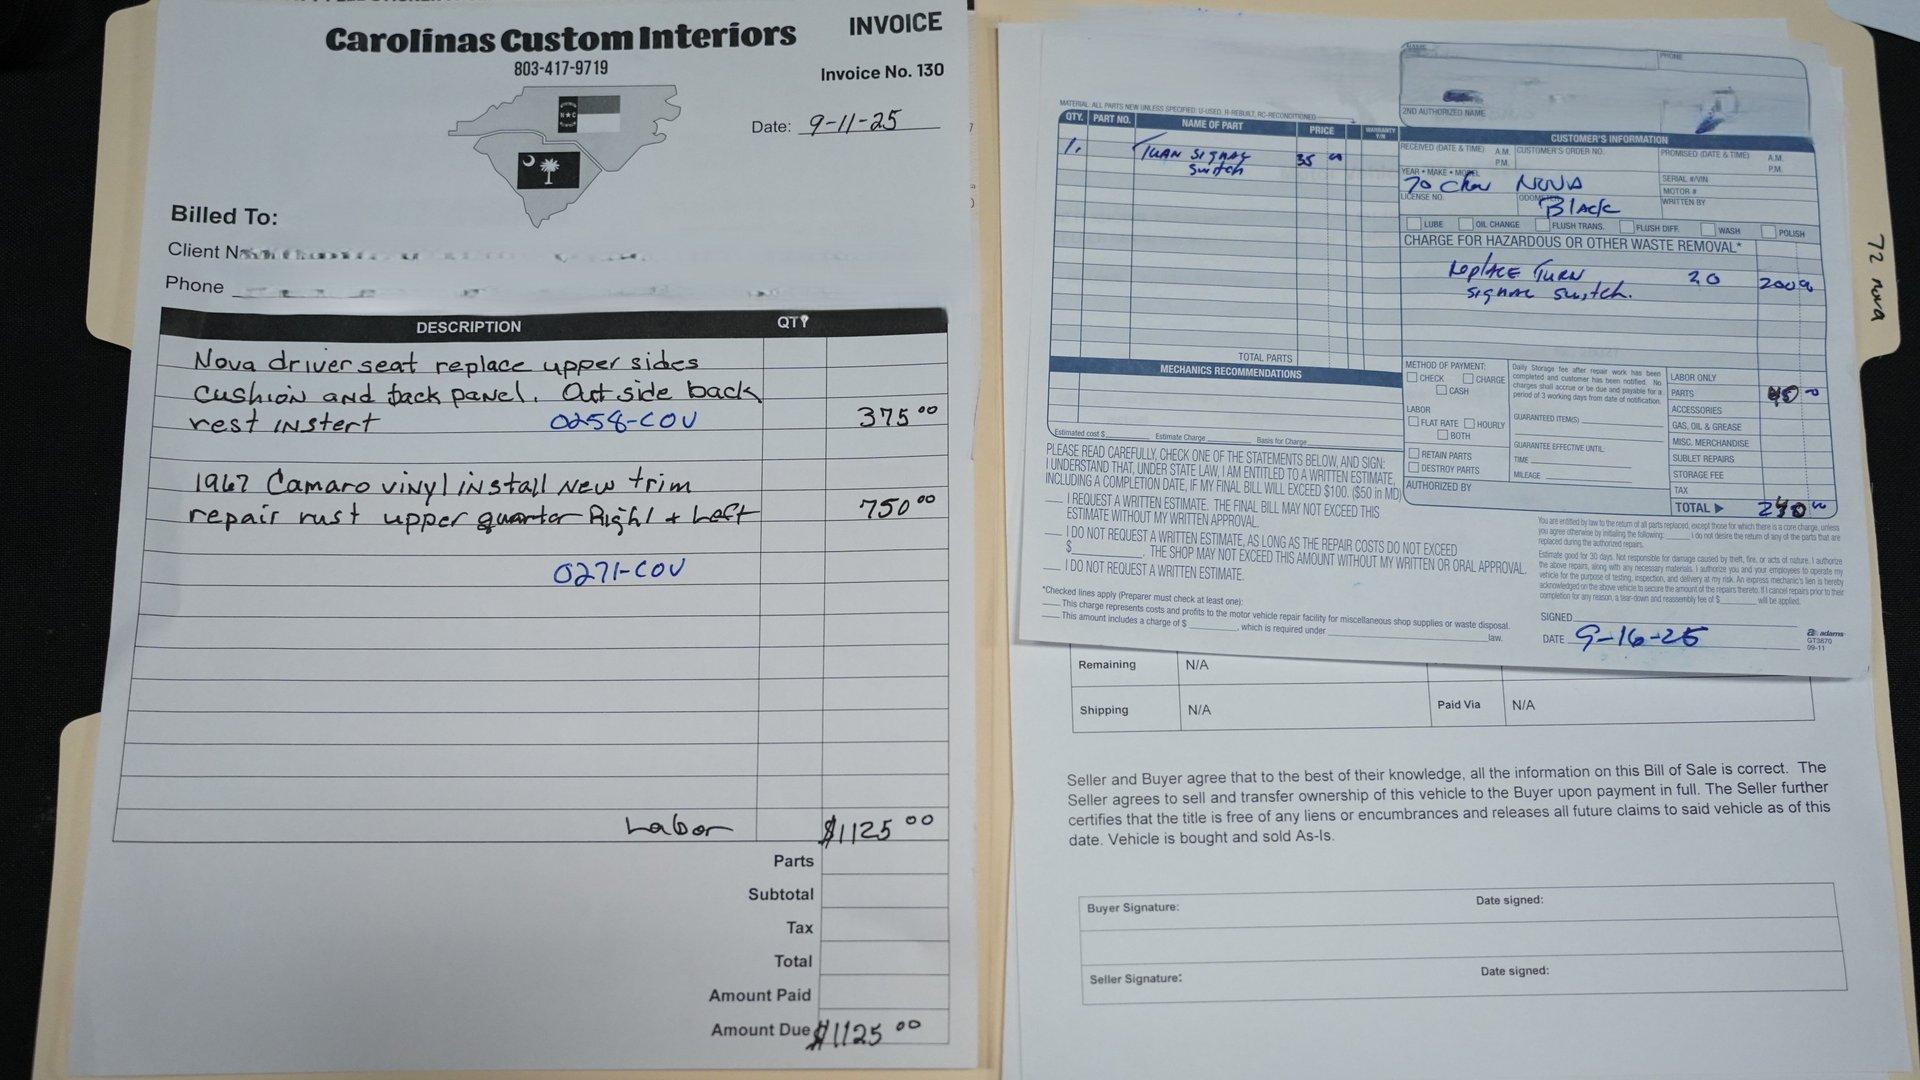 Carolinas Custom Interiors
INVOICE
803-417-9719
Invoice No. 130
Date: 9-11-25
Billed To:
Client N
Phone
DESCRIPTION QTY
Nova driver seat replace upper sides
cushion and back panel. Out side back
rest instert 0258-COV 375 00
1967 Camaro vinyl install new trim
repair rust upper quarter Right + Left 750 00
0271-COV
Labor $1125 00
Parts
Subtotal
Tax
Total
Amount Paid
Amount Due $1125 00
NAME
PHONE
2ND AUTHORIZED NAME
MATERIAL: ALL PARTS NEW UNLESS SPECIFIED: U-USED, R-REBUILT, RC-RECONDITIONED
QTY. PART NO. NAME OF PART PRICE WARRANTY Y/N
1. TURN SIGNAL 35 00
switch
TOTAL PARTS
CUSTOMER'S INFORMATION
RECEIVED (DATE & TIME) A.M. P.M. CUSTOMER'S ORDER NO. PROMISED (DATE & TIME) A.M. P.M.
YEAR • MAKE • MODEL SERIAL #/VIN
70 Chev NOVA
MOTOR #
LICENSE NO. WRITTEN BY
Black
LUBE OIL CHANGE FLUSH TRANS. FLUSH DIFF. WASH POLISH
CHARGE FOR HAZARDOUS OR OTHER WASTE REMOVAL*
replace Turn 20 200
signal switch.
MECHANICS RECOMMENDATIONS
Estimated cost $ Estimate Charge Basis for Charge
METHOD OF PAYMENT:
CHECK CHARGE
CASH
LABOR
FLAT RATE HOURLY
BOTH
RETAIN PARTS
DESTROY PARTS
AUTHORIZED BY
Daily Storage fee after repair work has been
completed and customer has been notified. No
charges shall accrue or be due and payable for a
period of 3 working days from date of notification.
GUARANTEED ITEM(S)
GUARANTEE EFFECTIVE UNTIL:
TIME
MILEAGE
LABOR ONLY
PARTS
ACCESSORIES
GAS, OIL & GREASE
MISC. MERCHANDISE
SUBLET REPAIRS
STORAGE FEE
TAX
TOTAL 240
PLEASE READ CAREFULLY, CHECK ONE OF THE STATEMENTS BELOW, AND SIGN:
I UNDERSTAND THAT, UNDER STATE LAW, I AM ENTITLED TO A WRITTEN ESTIMATE,
INCLUDING A COMPLETION DATE, IF MY FINAL BILL WILL EXCEED $100. ($50 in MD)
I REQUEST A WRITTEN ESTIMATE. THE FINAL BILL MAY NOT EXCEED THIS
ESTIMATE WITHOUT MY WRITTEN APPROVAL.
I DO NOT REQUEST A WRITTEN ESTIMATE, AS LONG AS THE REPAIR COSTS DO NOT EXCEED
$ . THE SHOP MAY NOT EXCEED THIS AMOUNT WITHOUT MY WRITTEN OR ORAL APPROVAL.
I DO NOT REQUEST A WRITTEN ESTIMATE.
*Checked lines apply (Preparer must check at least one):
This charge represents costs and profits to the motor vehicle repair facility for miscellaneous shop supplies or waste disposal.
This amount includes a charge of $ , which is required under law.
You are entitled by law to the return of all parts replaced, except those for which there is a core charge, unless
you agree otherwise by initialing the following: I do not desire the return of any of the parts that are
replaced during the authorized repairs.
Estimate good for 30 days. Not responsible for damage caused by theft, fire, or acts of nature. I authorize
the above repairs, along with any necessary materials. I authorize you and your employees to operate my
vehicle for the purpose of testing, inspection, and delivery at my risk. An express mechanic's lien is hereby
acknowledged on the above vehicle to secure the amount of the repairs thereto. If I cancel repairs prior to their
completion for any reason, a tear-down and reassembly fee of $ will be applied.
SIGNED
DATE 9-16-25
adams
GT3870
09-11
72 Nova
Remaining N/A
Shipping N/A Paid Via N/A
Seller and Buyer agree that to the best of their knowledge, all the information on this Bill of Sale is correct. The
Seller agrees to sell and transfer ownership of this vehicle to the Buyer upon payment in full. The Seller further
certifies that the title is free of any liens or encumbrances and releases all future claims to said vehicle as of this
date. Vehicle is bought and sold As-Is.
Buyer Signature: Date signed:
Seller Signature: Date signed: